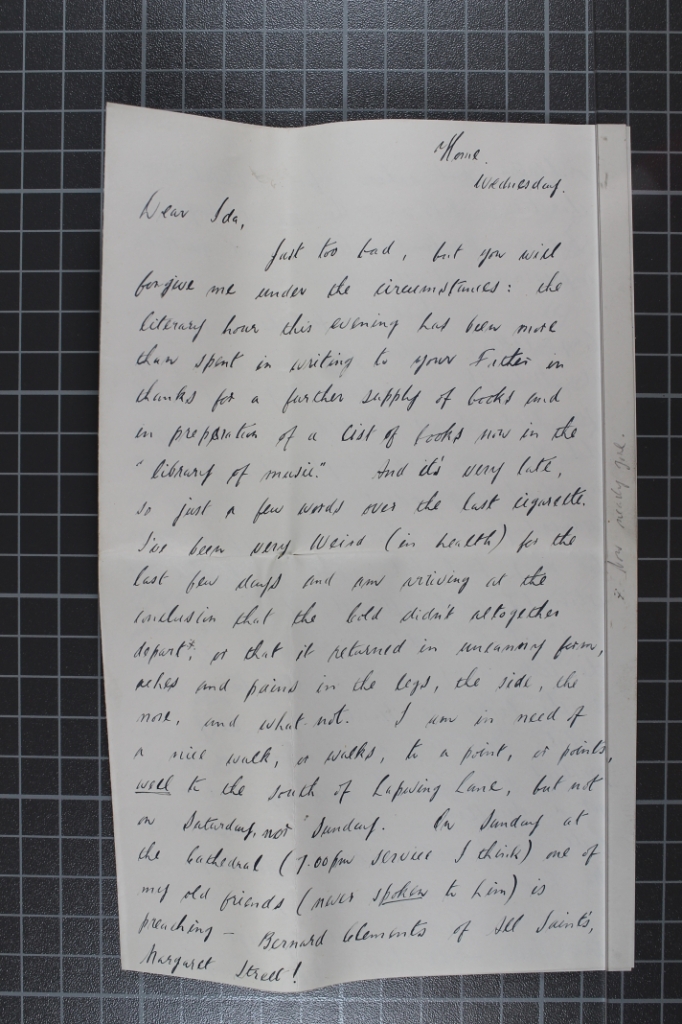 Home.
Wednesday.
Dear Ida,
Just too bad, but you will
forgive me under the circumstances: the
literary hour this evening has been more
than spent in writing to your Father in
thanks for a further supply of books and
in preparation of a list of books now in the
"library of music." And it's very late,
so just a few words over the last cigarette.
I've been very weird (in health) for the
last few days and am arriving at the
conclusion that the cold didn't altogether
depart*, or that it returned in uncanny form,
aches and pains in the legs, the side, the
nose, and what-not. I am in need of
a nice walk, or walks, to a point, or points,
well to the south of Lapwing Lane, but not
on Saturday, nor Sunday. On Sunday at
the Cathedral (7.00pm service I think) one of
my old friends (never spoken to him) is
preaching – Bernard Clements of All Saint's,
Margaret Street!